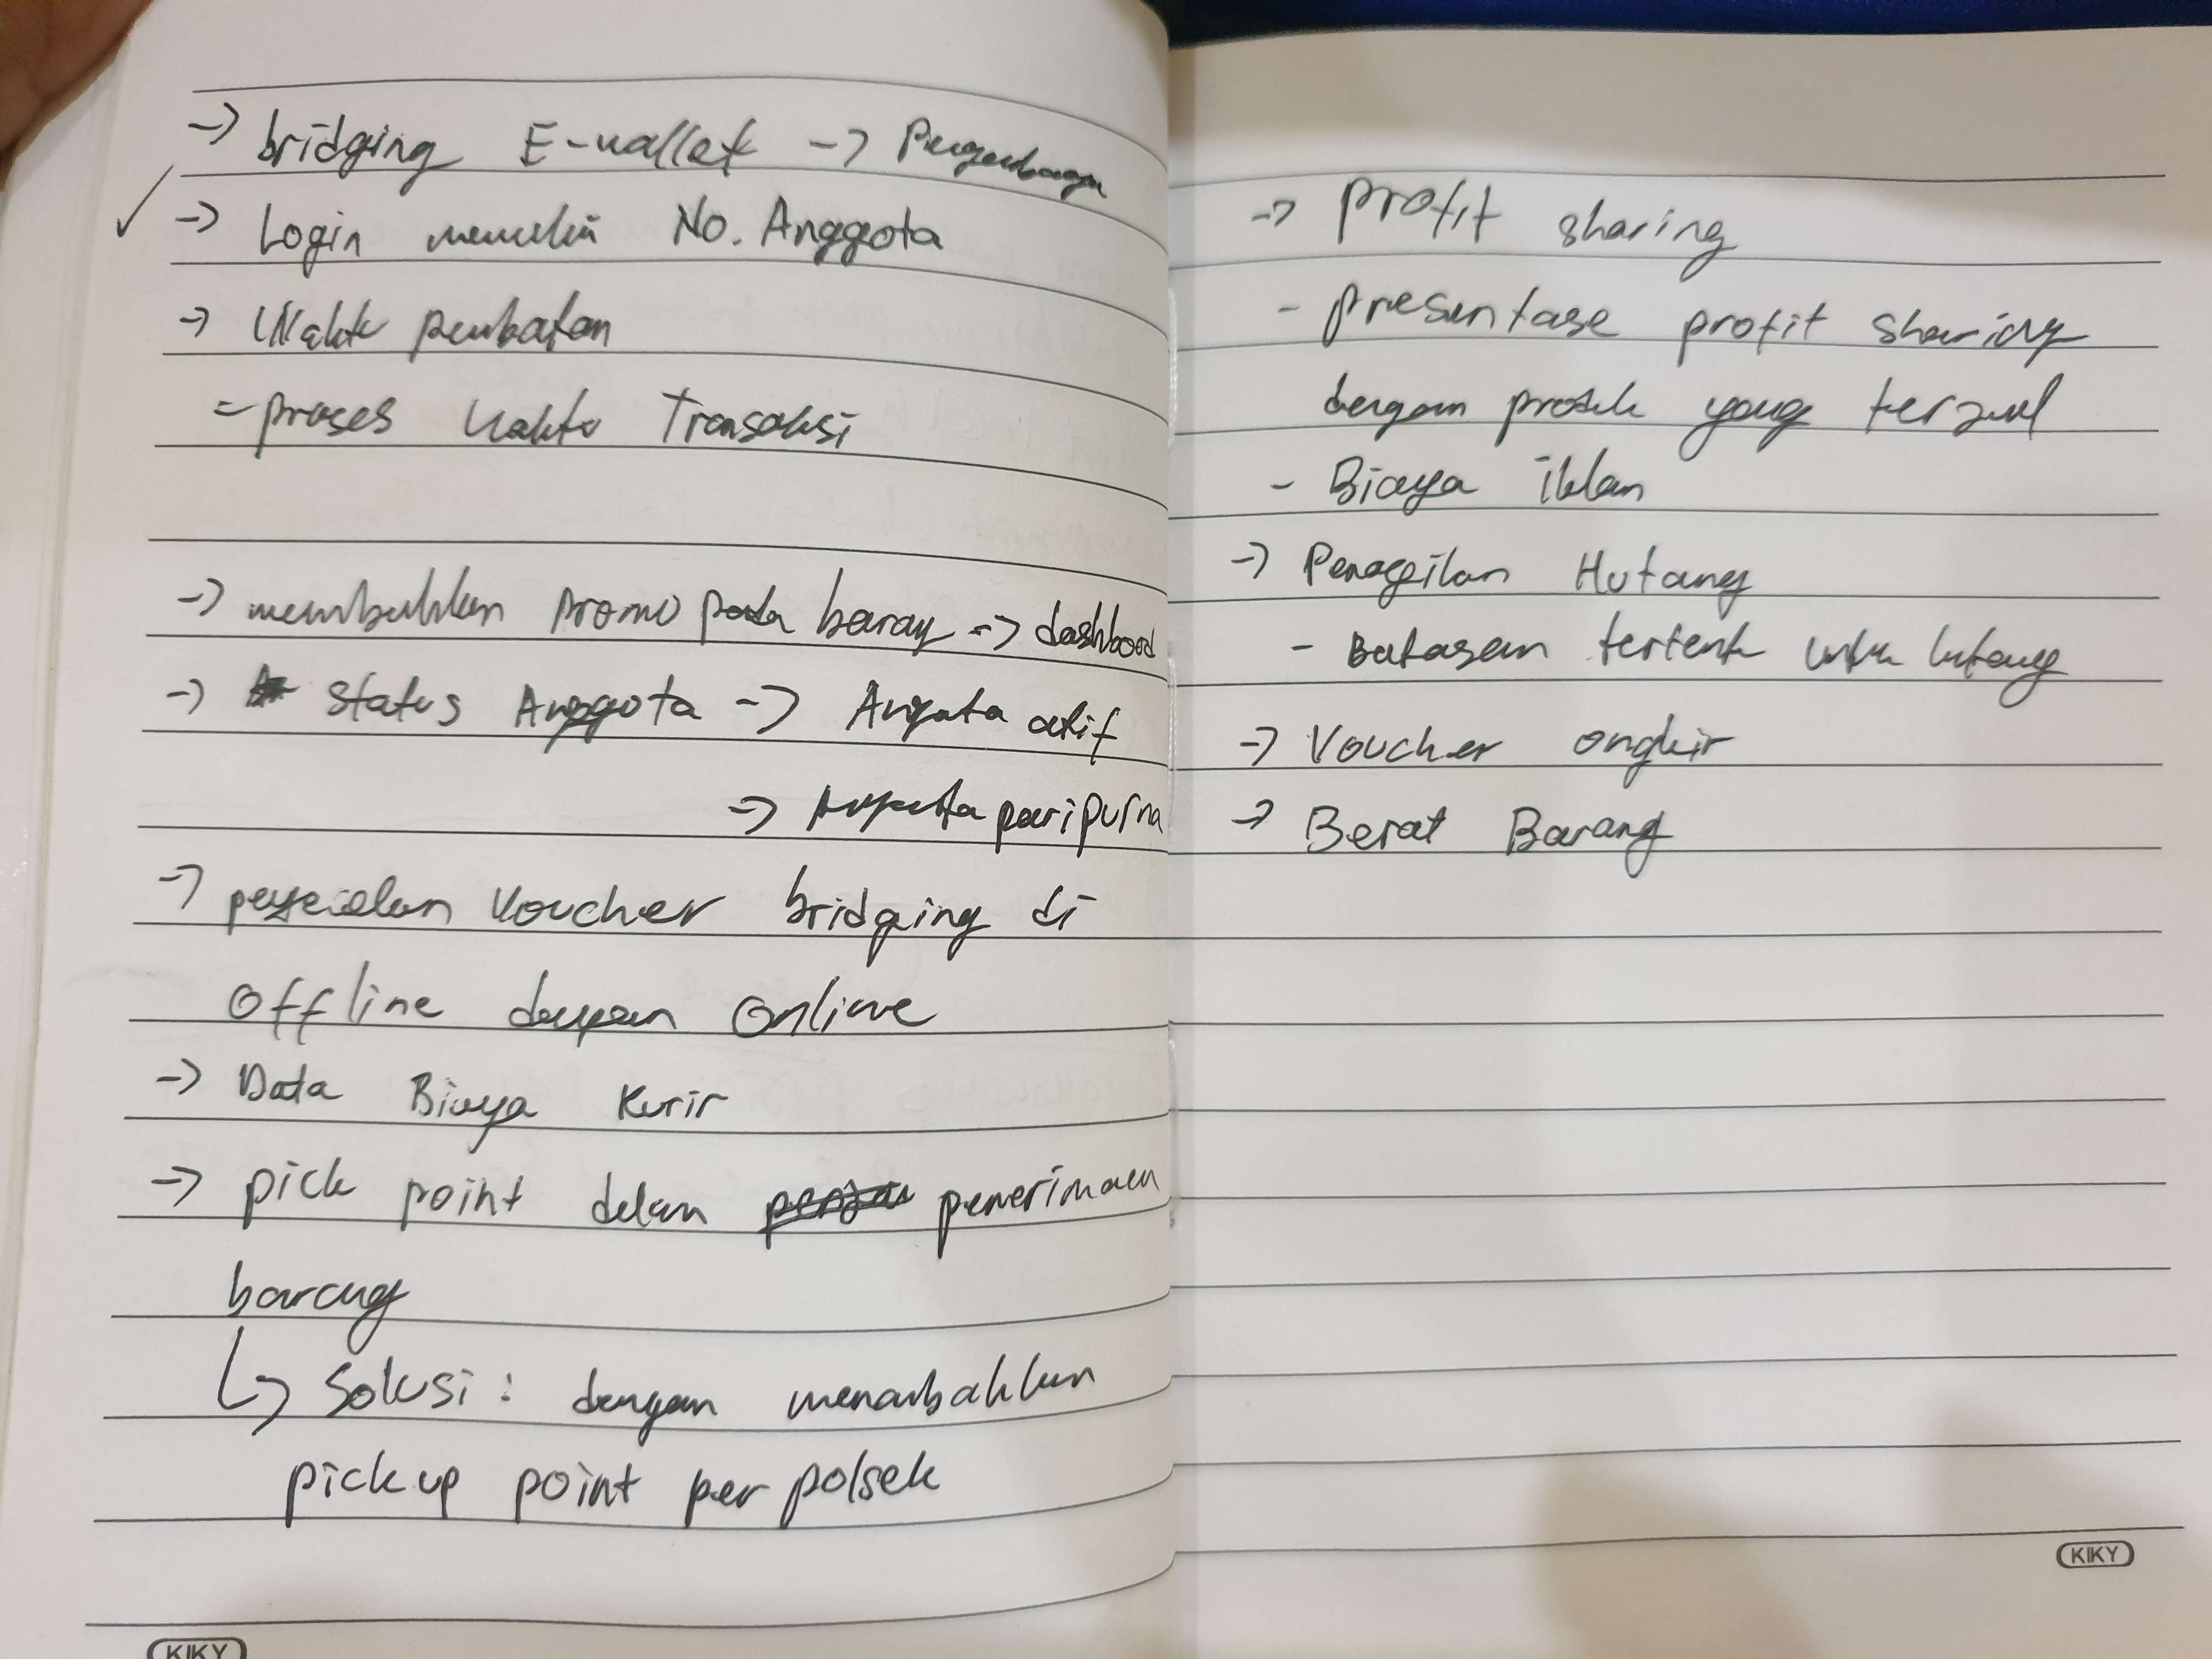 → bridging E-wallet → Pengembangan
✓ → Login memakai No. Anggota
→ Waktu
= proses waktu Transaksi
→ pada barang → dashboard
→ status Anggota → Anggota aktif
→ Anggota paripurna
→ voucher bridging di
offline dengan online
→ Data Biaya Kurir
→ pick point dalam penerimaan
barang
↳ Solusi : dengan menambahkan
pick up point per polsek
KIKY
→ profit sharing
- presentase profit sharing
dengan produk yang terjual
- Biaya iklan
→ Penagihan Hutang
- Batasan tertentu untuk hutang
→ Voucher ongkir
→ Berat Barang
KIKY